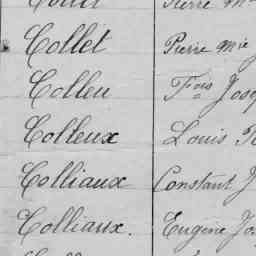 Collet Pierre Mie
Colleu Fois Jose
Colleux Louis
Colliaux Constant J
Colliaux. Eugène Jo